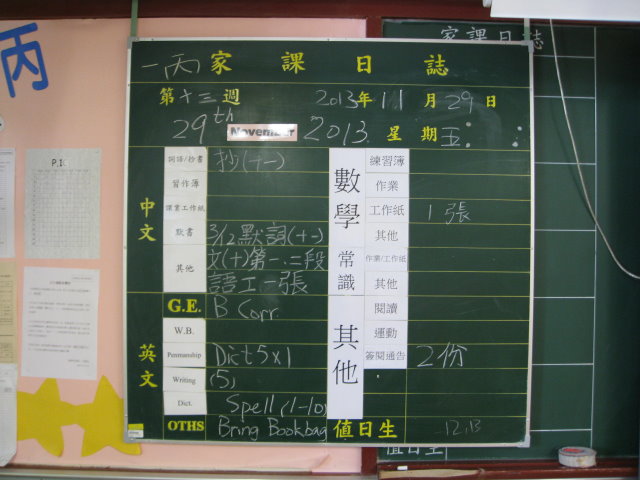 丙
家課日誌
一丙家課日誌
第十三週 2013年11月29日
29th November 2013 星期五:
中文
詞語/抄書 抄(十一)
習作簿
課業工作紙
默書 3/12默詞(十一)
其他 文(十)第一、二段
語工一張
英文
G.E. B Corr.
W.B.
Penmanship Dict 5x1
Writing (5)
Dict. Spell (1-10)
OTHS Bring Bookbag
數學
練習簿
作業
工作紙 1張
其他
常識
作業/工作紙
其他
其他
閱讀
運動
簽閱通告 2份
值日生 12,13
值日生
P.1C